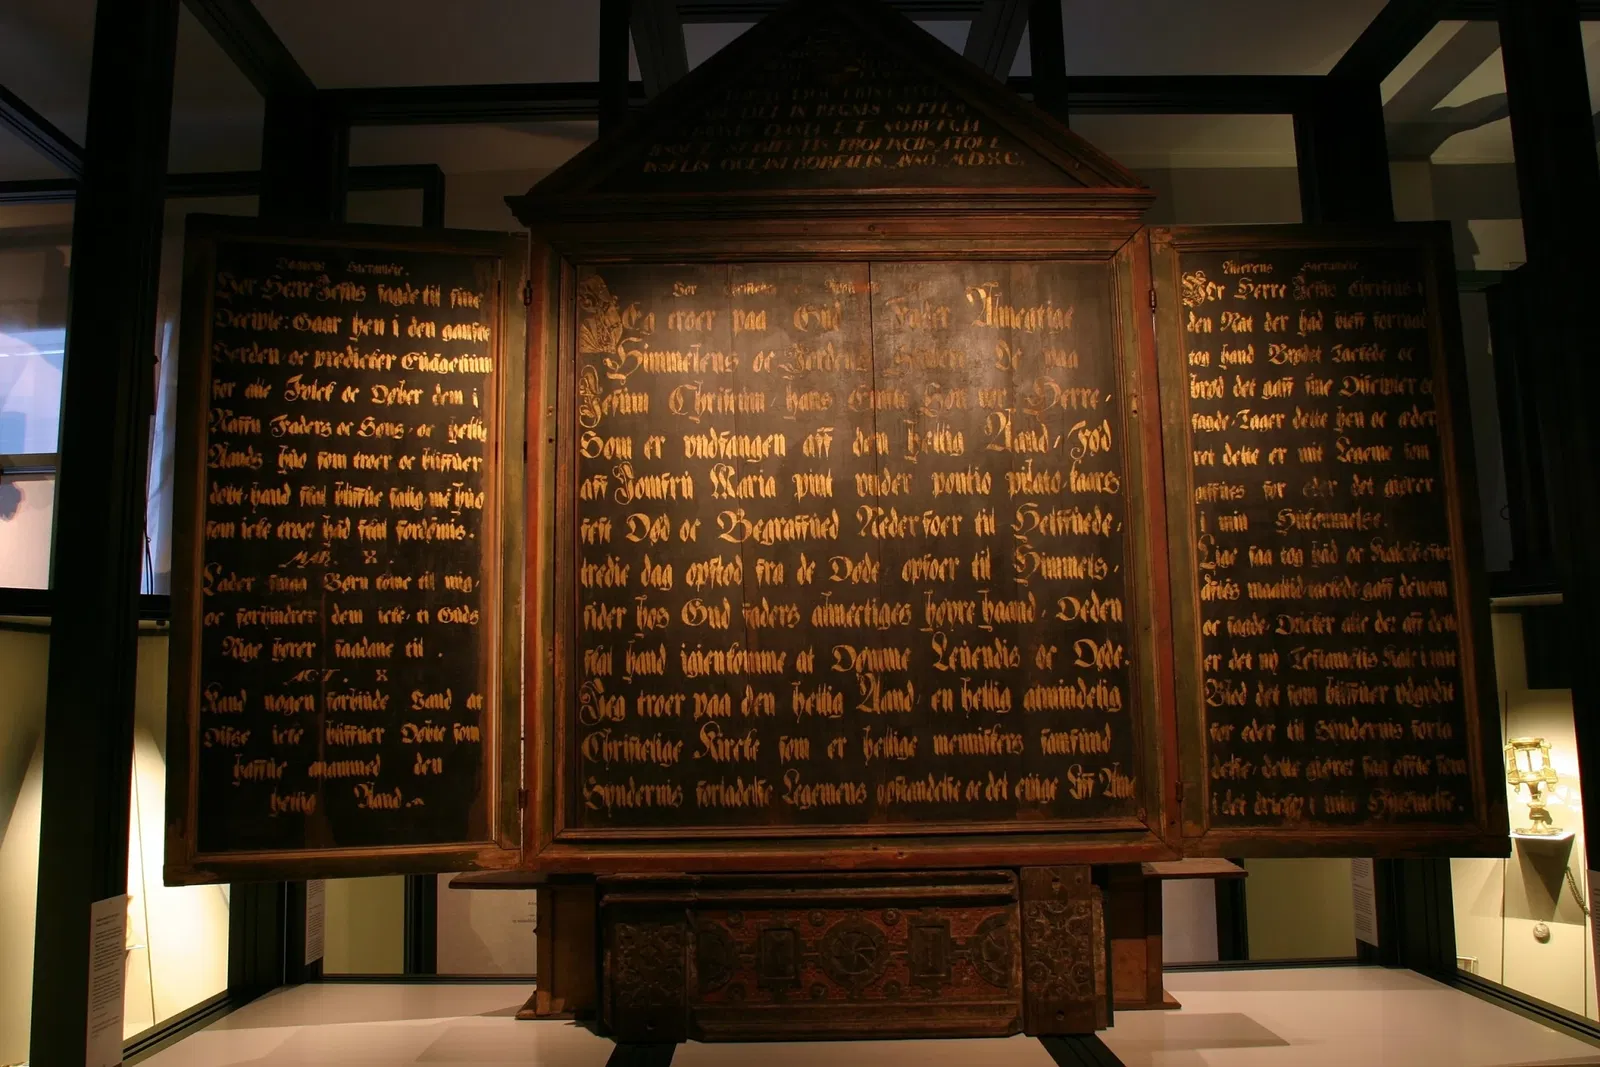 IN REGNIS SEPTEN
DANIÆ E T NORVEGIÆ
PROVINCIIS ATQVE
INSVLIS OCEANI BOREALIS. ANNO. MDXC.
Daabens Sacramête.
Vor Herre Jesus sagde til sine
Deciple: Gaar hen i den gantske
Verden oc predicker Euägelium
for alle Folck oc Døber dem i
Naffn Faders oc Søns, oc hellig
Aands, hûo som troer oc bliffuer
døbt, hand skal bliffue salig mē hûo
som icke troer hād skal fordømis.
MAR. X
Lader smaa Børn kome til mig,
oc forhindrer dem icke, ti Guds
Rige hører saadane til.
ACT. X
Kand nogen forbiude Vand at
Disse icke bliffuer Døbte som
haffue anammed den
hellig Aand.
Vor Christelig
JEg troer paa Gud Fader Almegtige
Himmelens oc Jordens Skaber. Oc paa
Jesum Christum, hans Eniste Søn vor Herre,
Som er vndfangen aff den hellig Aand, Fød
aff Jomfrū Maria pint vnder pontio pilato, kaars
fest Død oc Begraffued Neder foer til Helffuede,
tredie dag opstod fra de Døde, opfoer til Himmels,
sider hos Gud faders almectiges høyre haand, Deden
skal hand igienkomme at Dømme Leuendis oc Døde.
Jeg troer paa den hellig Aand, en hellig almindelig
Christelige Kircke som er hellige menniskers samfund
Syndernis forladelse Legemens opstandelse oc det euige Liff Ame
Alterens Sacramête
VOr Herre Jesus Christus i
den Nat der hād bleff forraad
tog hand Brødet Tackede oc
brød det gaff sine Discipler oc
sagde, Tager dette hen oc æder
ret dette er mit Legeme som
giffues for eder det giører
i min Hukommelse.
Lige saa tog hād oc Kalcken effter
afftens maaltid, tackede, gaff dēnem
oc sagde, Dricker alle der aff dette
er det ny Testamētis Kalck i mit
Blod det som bliffuer vdgydit
for eder til Syndernis forla
delse, dette giører saa offte som
i det dricker i min Hukōmelse.